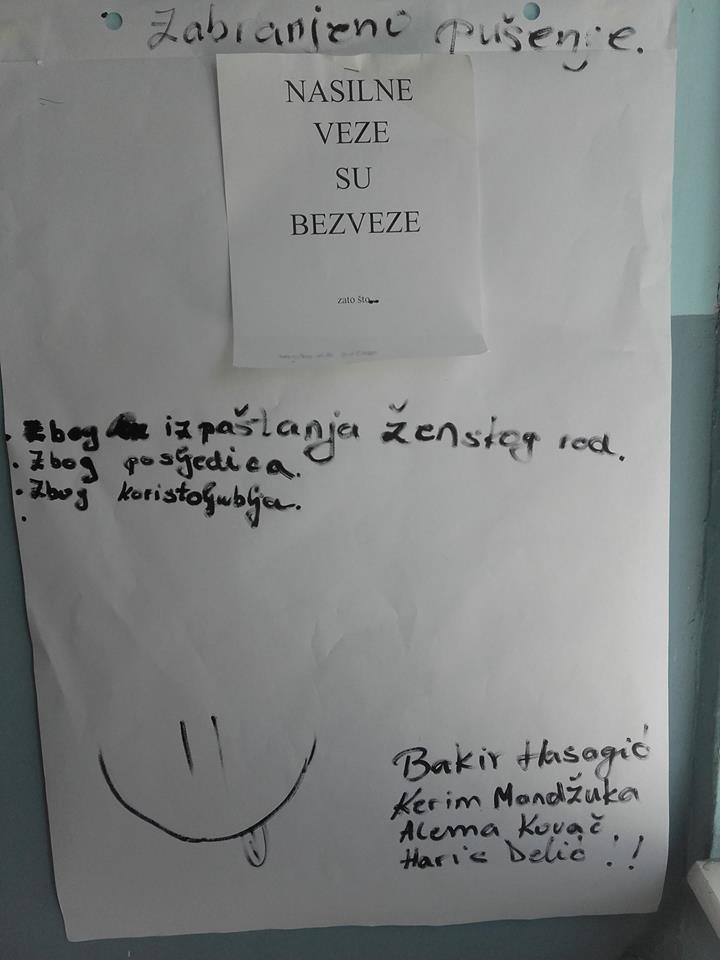 Zabranjeno pušenje.
NASILNE
VEZE
SU
BEZVEZE
zato što
. Zbog izpaštanja ženskog rod.
. Zbog posljedica.
. Zbog koristoljublja.
.
Bakir Hasagić
Kerim Mandžuka
Alema Kovač
Haris Delić !!